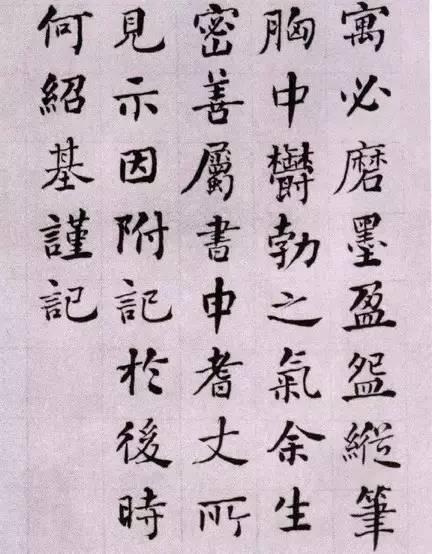 寓必磨墨盈盌縱筆
胸中欝勃之氣余生
密善屬書中耆丈所
見示因附記於後時
何紹基謹記